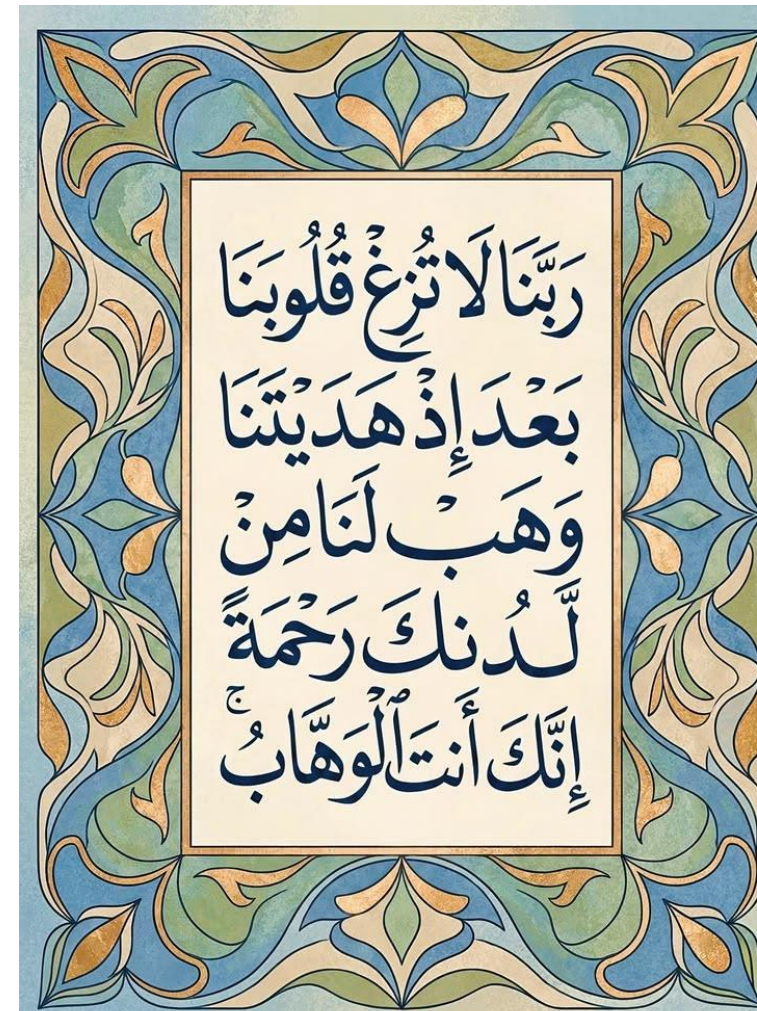 رَبَّنَا لَا تُزِغْ قُلُوبَنَا
بَعْدَ إِذْ هَدَيْتَنَا
وَهَبْ لَنَا مِنْ
لَّدُنكَ رَحْمَةً ۚ
إِنَّكَ أَنتَ ٱلْوَهَّابُ